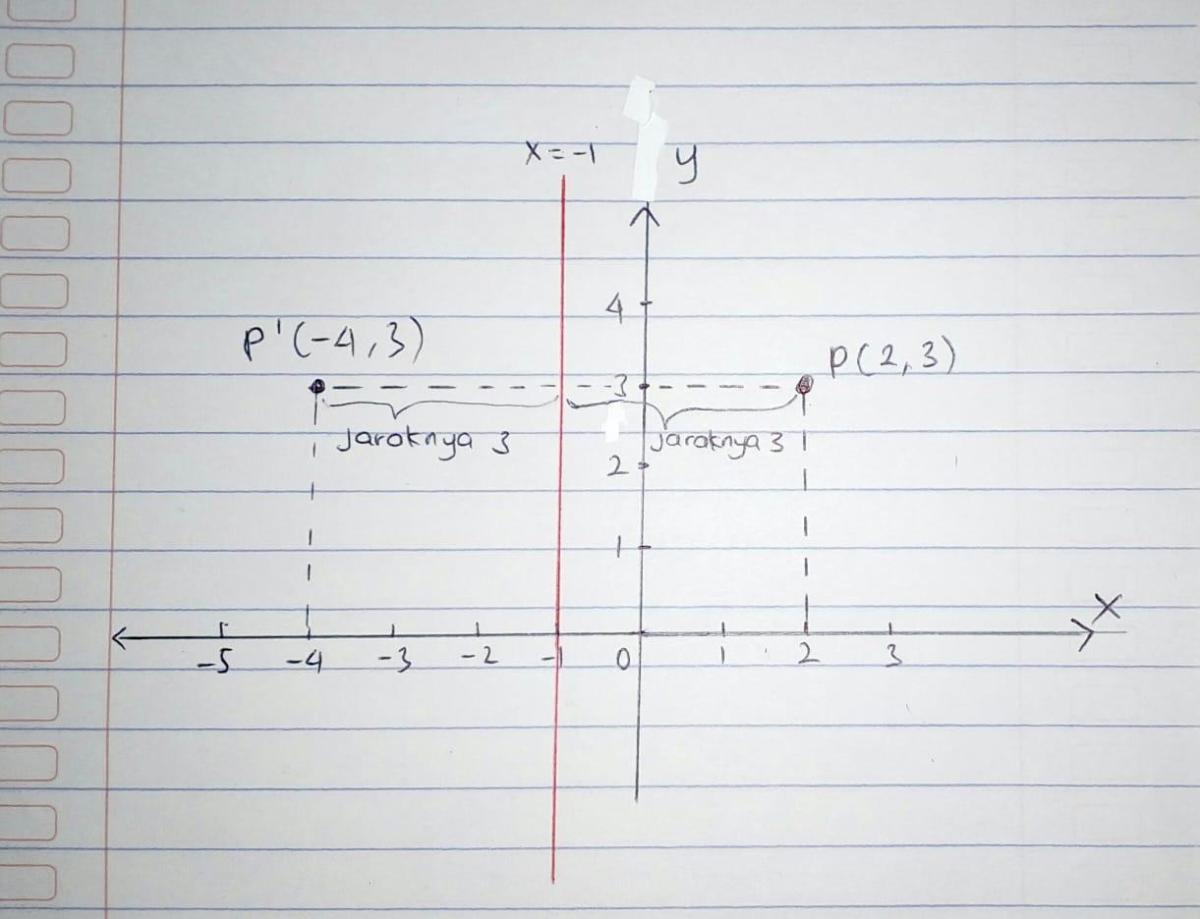 x = -1
y
4
P'(-4,3)
P(2,3)
3
jaraknya 3
jaraknya 3
2
1
X
-5 -4 -3 -2 -1 0 1 2 3